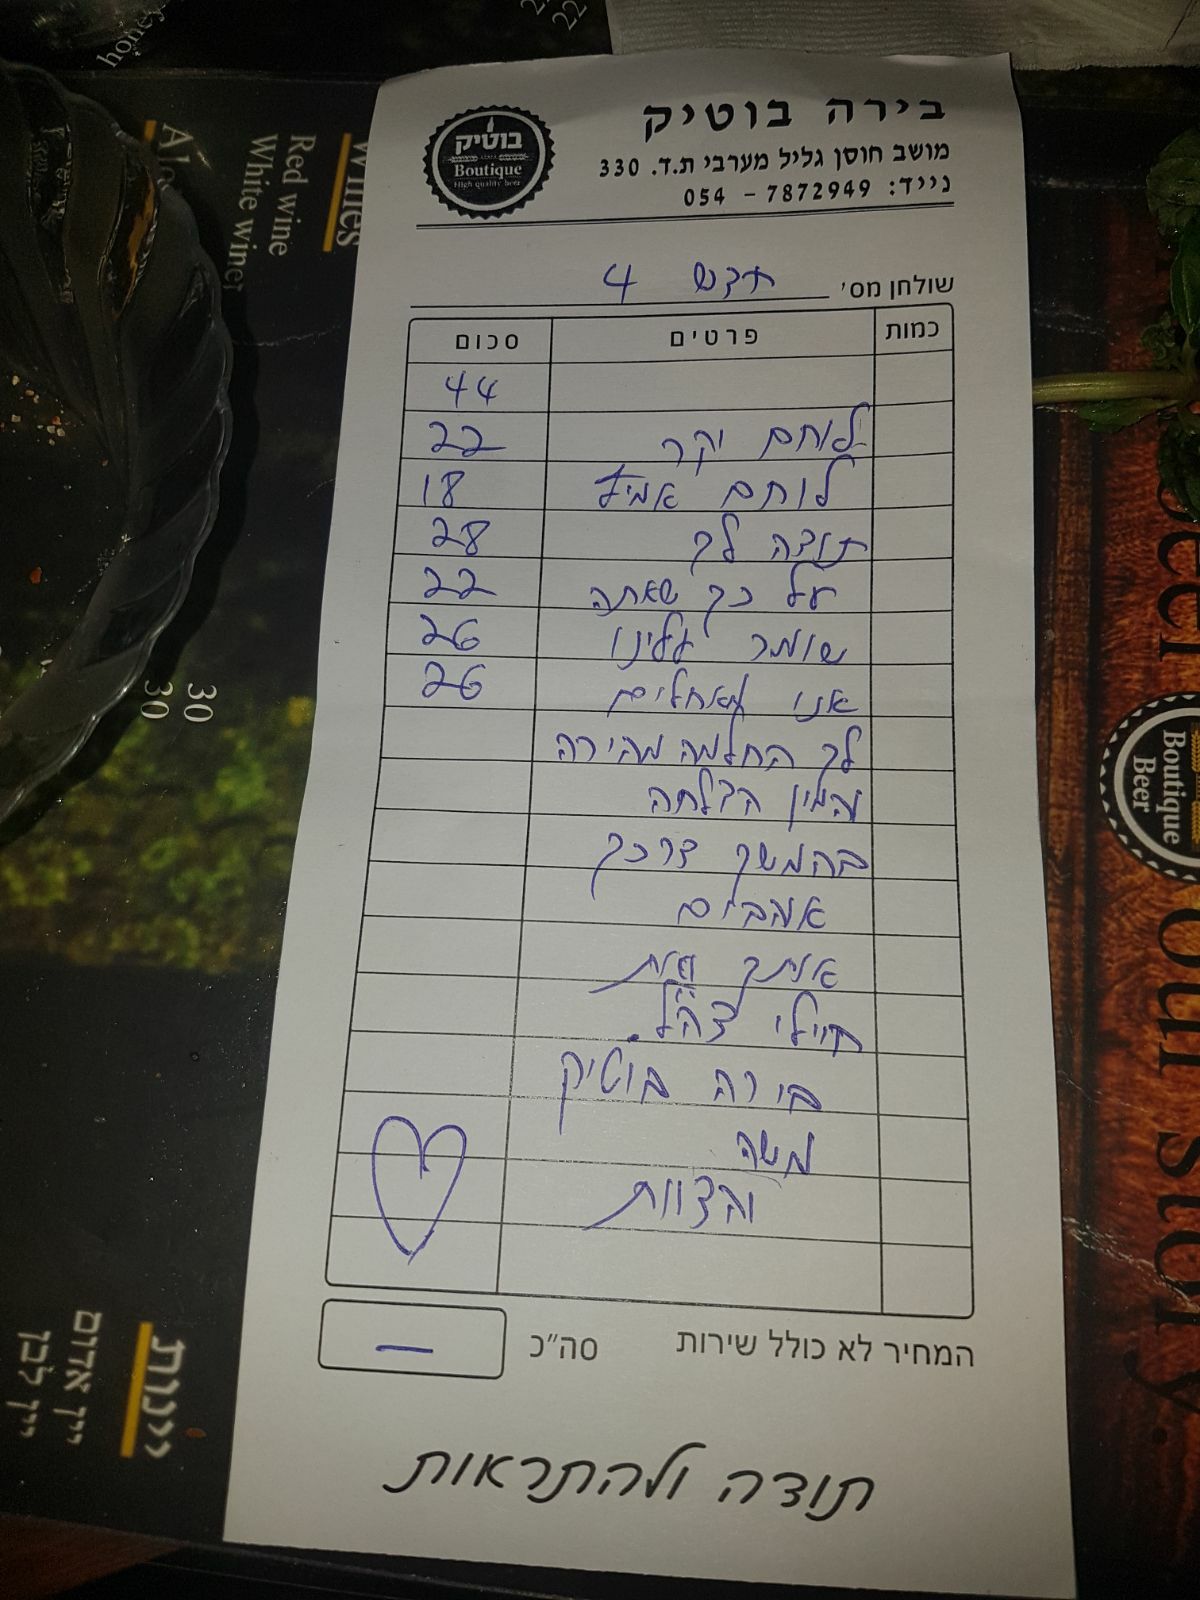 honey
בירה בוטיק
מושב חוסן גליל מערבי ת.ד. 330
נייד: 7872949 - 054
בוטיק
Boutique
High quality beer
שולחן מס׳ חדש 4
כמות פרטים סכום
44
לוחם יקר 22
לוחם אמיץ 18
תודה לך 28
על כך שאתה 22
שומר עלינו 26
אנו מאחלים 26
לך החלמה מהירה
והמון הצלחה
בהמשך דרכך
אוהבים
אותך ואת
חיילי צה"ל.
בירה בוטיק
משה
והצוות
המחיר לא כולל שירות סה״כ —
תודה ולהתראות
Wines
Red wine
White wine
30
30
יינות
יין אדום
יין לבן
Boutique
Beer
our story